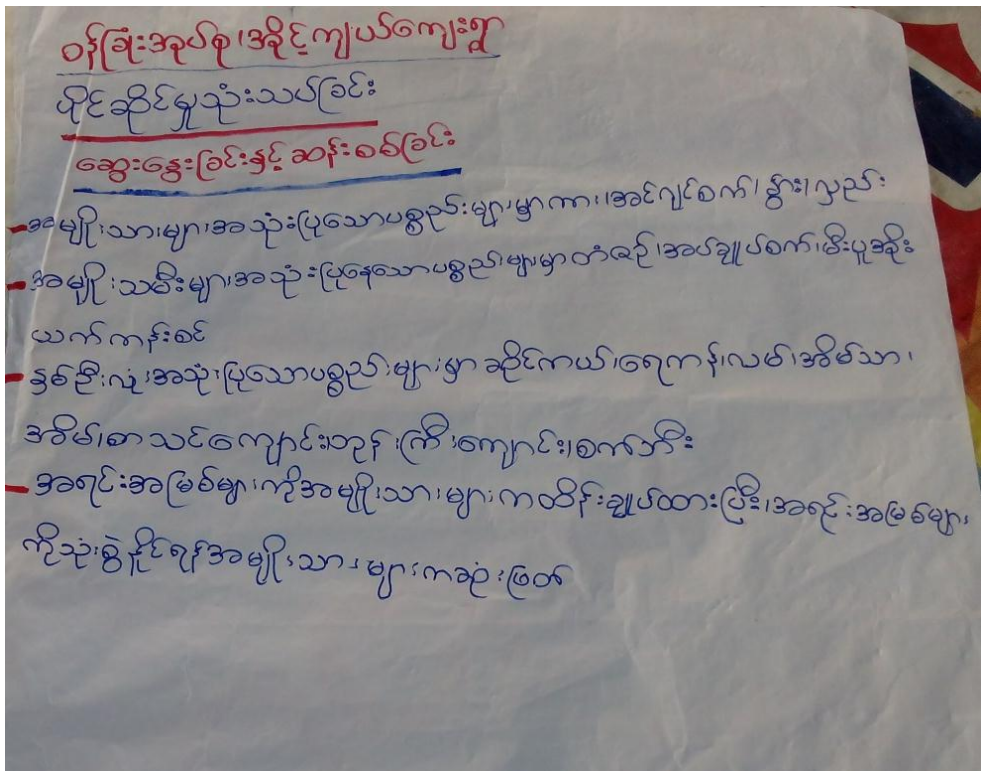 ဝန်ခြုံးအုပ်စု၊အခိုင့်ကျယ်ကျေးရွာ
ပိုင်ဆိုင်မှုသုံးသပ်ခြင်း
ဆွေးနွေးခြင်းနှင့်ဆန်းစစ်ခြင်း
-အမျိုးသားများအသုံးပြုသောပစ္စည်းများမှာကား၊အင်ဂျင်စက်၊နွား၊လှည်း
-အမျိုးသမီးများအသုံးပြုနေသောပစ္စည်းများမှာတံစဉ်၊အပ်ချုပ်စက်၊မီးပူအိုး
ယက်ကန်းစင်
-နှစ်ဦးလုံးအသုံးပြုသောပစ္စည်းများမှာဆိုင်ကယ်၊ရေကန်၊လမ်း၊အိမ်သာ၊
အိမ်၊စာသင်ကျောင်း၊ဘုန်းကြီးကျောင်း၊စက်ဘီး
-အရင်းအမြစ်များကိုအမျိုးသားများကထိန်းချုပ်ထားပြီး၊အရင်းအမြစ်များ
ကိုသုံးစွဲနိုင်ရန်အမျိုးသားများကဆုံးဖြတ်